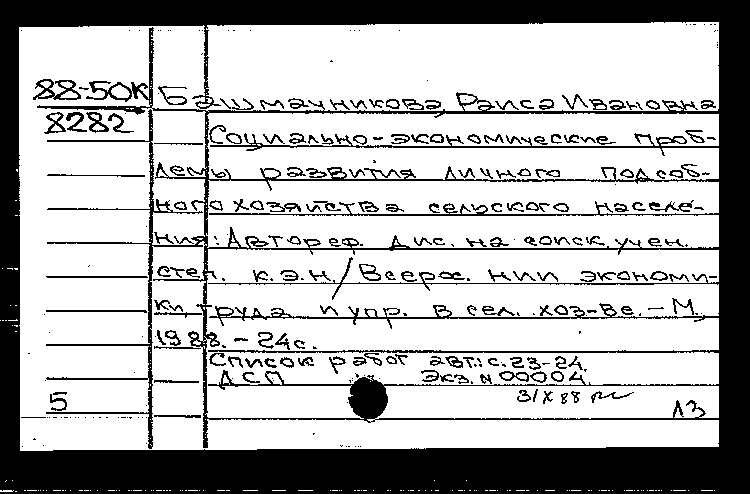 88-50К Башмачникова, Раиса Ивановна
8282 Социально-экономические проб-
лемы развития личного подсоб-
ного хозяйства сельского населе-
ния: Автореф. дис. на соиск. учен.
степ. к.э.н. / Всерос. нии экономи-
ки, труда и упр. в сел. хоз-ве. – М.,
1988. – 24с.
Список работ авт.: с. 23-24.
ДСП Экз. N 00004.
5 31/X 88